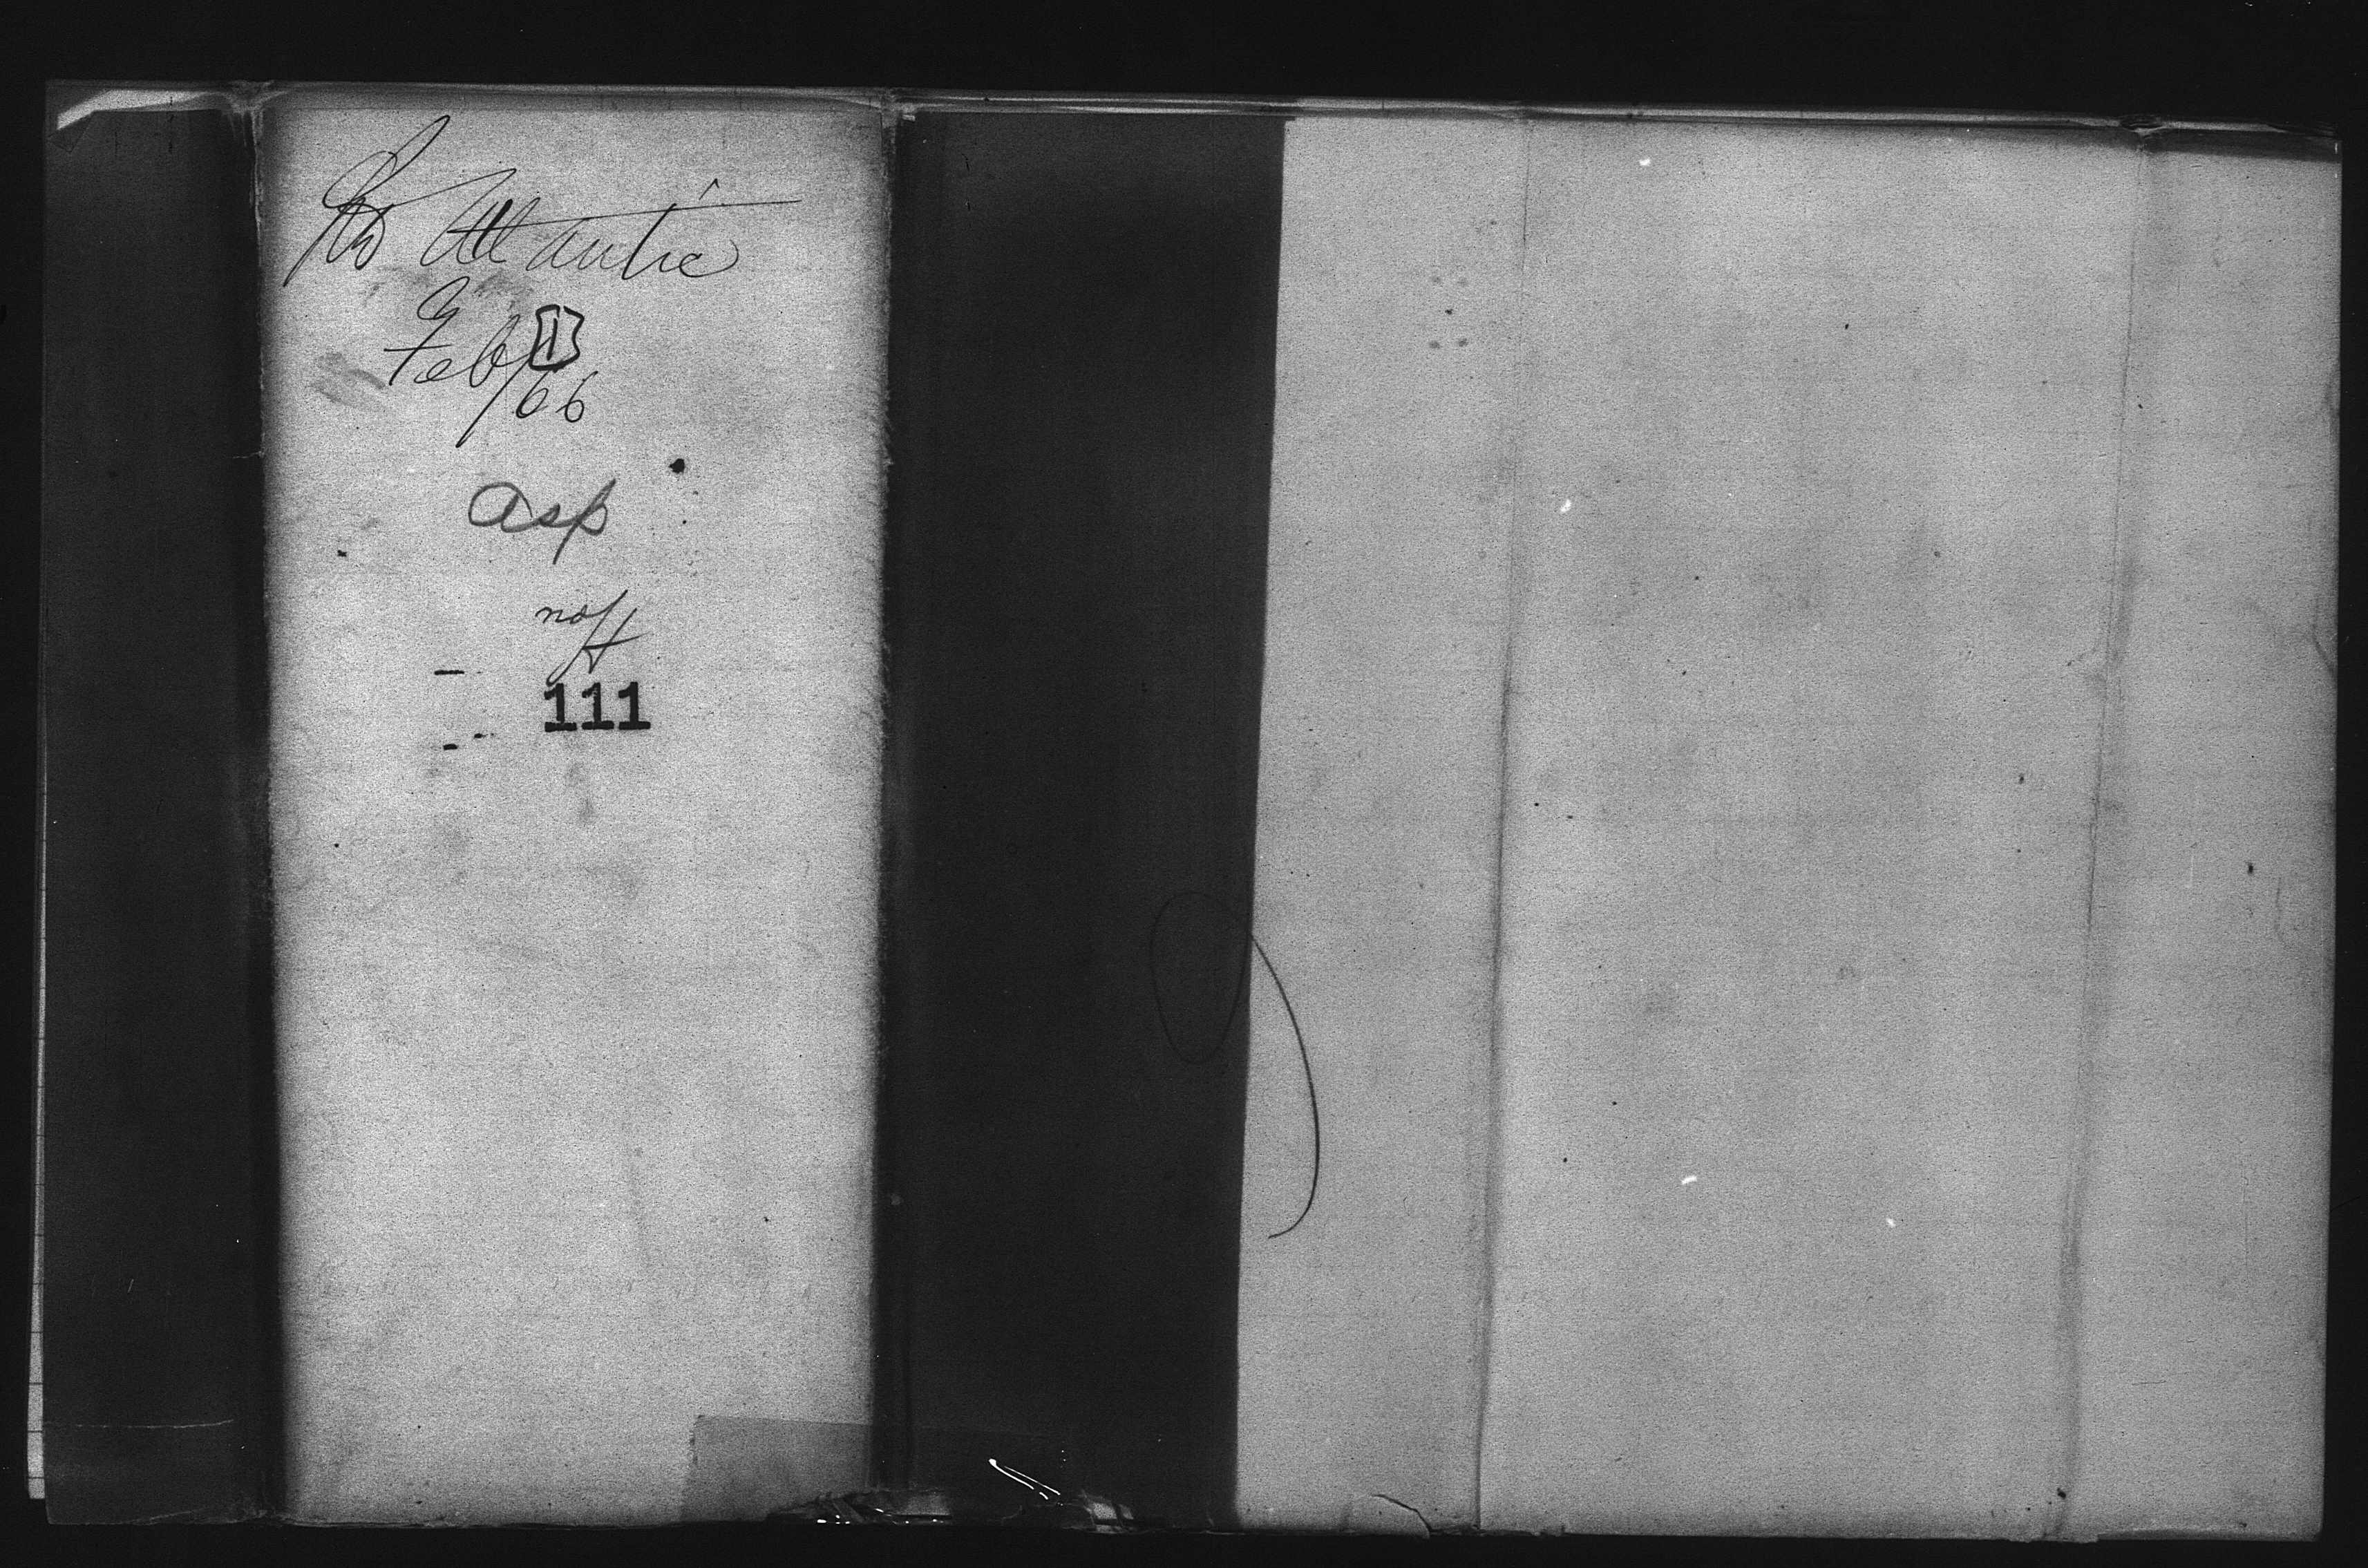 Atlantic
Feb 1
/66
asp
no H
111